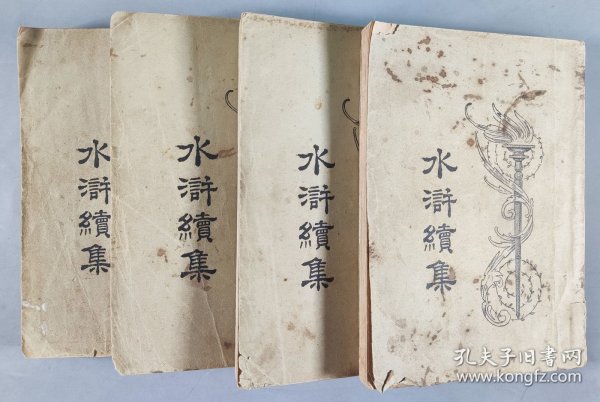 水滸續集
水滸續集
水滸續集
水滸續集
孔夫子旧书网
www.kongfz.com